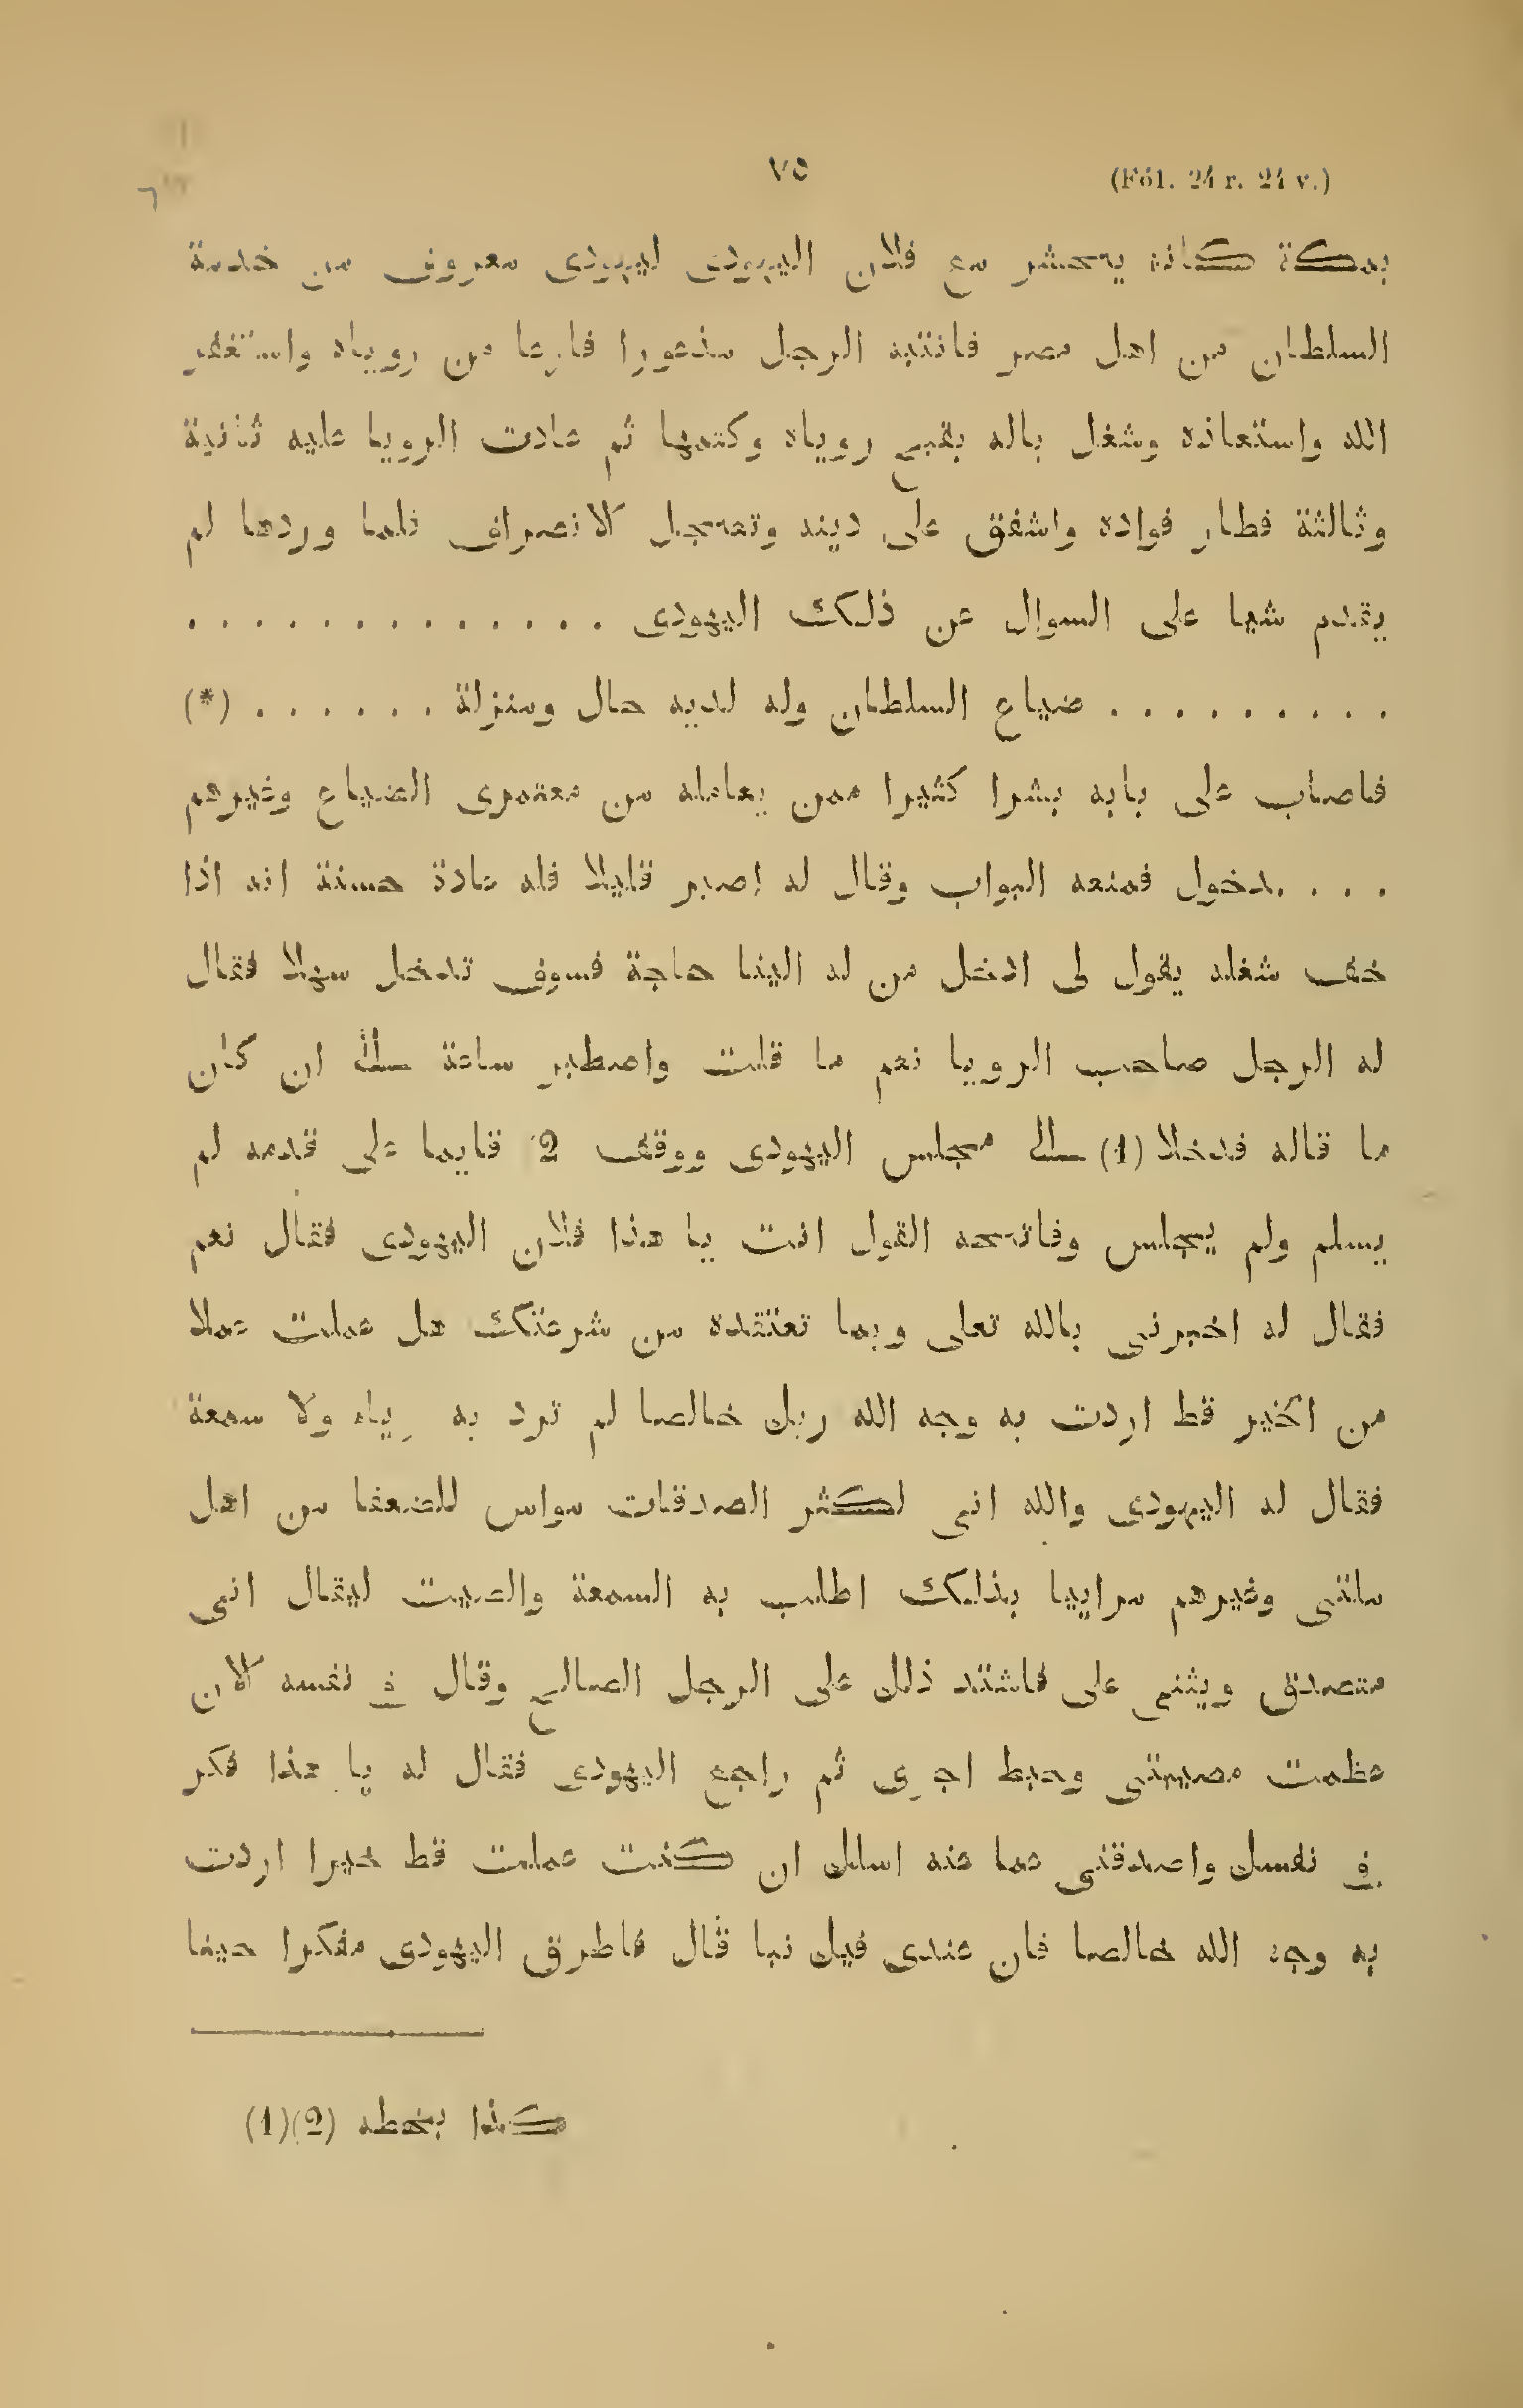 (Fól. 24 r. 24 v.) ٧٥
بمكة كانه يحشر مع فلان اليهودى ليهودى معروف من خدمة
السلطان من اهل مصر فانتبه الرجل مذعورا فازعا من روياه واستغفر
الله واستعاذه وشغل باله بقبح روياه وكتمها ثم عادت الرويا عليه ثانية
وثالثة فطار فواده واشفق على دينه وتعجل الانصراف فلما وردها لم
يقدم شيا على السوال عن ذلك اليهودى . . . . . . . . . . . . .
. . . . . . . . . ضياع السلطان وله لديه حال ومنزلة . . . . . . (*)
فاصاب على بابه بشرا كثيرا ممن يعامله من معتمرى الضياع وغيرهم
. . . .دخول فمنعه البواب وقال له إصبر قليلا فله عادة حسنة انه اذا
خف شغله يقول لى ادخل من له الينا حاجة فسوف تدخل سهلا فقال
له الرجل صاحب الرويا نعم ما قلت واصطبر ساعة الى ان كان
ما قاله فدخلا (1) الى مجلس اليهودى ووقف 2) قايما على قدمه لم
يسلم ولم يجلس وفاتحه القول انت يا هذا فلان اليهودى فقال نعم
فقال له اخبرنى بالله تعلى وبما تعتقده من شرعتك هل عملت عملا
من الخير قط اردت به وجه الله ربك خالصا لم ترد به رياه ولا سمعة
فقال له اليهودى والله انى لكثر الصدقات مواس للضعفا من اهل
ملتى وغيرهم مراييا بذلك اطلب به السمعة والصيت ليقال انى
متصدق ويثنى على فاشتد ذلك على الرجل الصالح وقال فى نفسه الان
عظمت مصيبتى وحبط اجرى ثم راجع اليهودى فقال له يا هذا فكر
فى نفسك واصدقنى عما عنه اسلك ان كنت عملت قط خيرا اردت
به وجه الله خالصا فان عندى فيك نبا قال فاطرق اليهودى مفكرا حينا
(1)(2) كذا بخطه